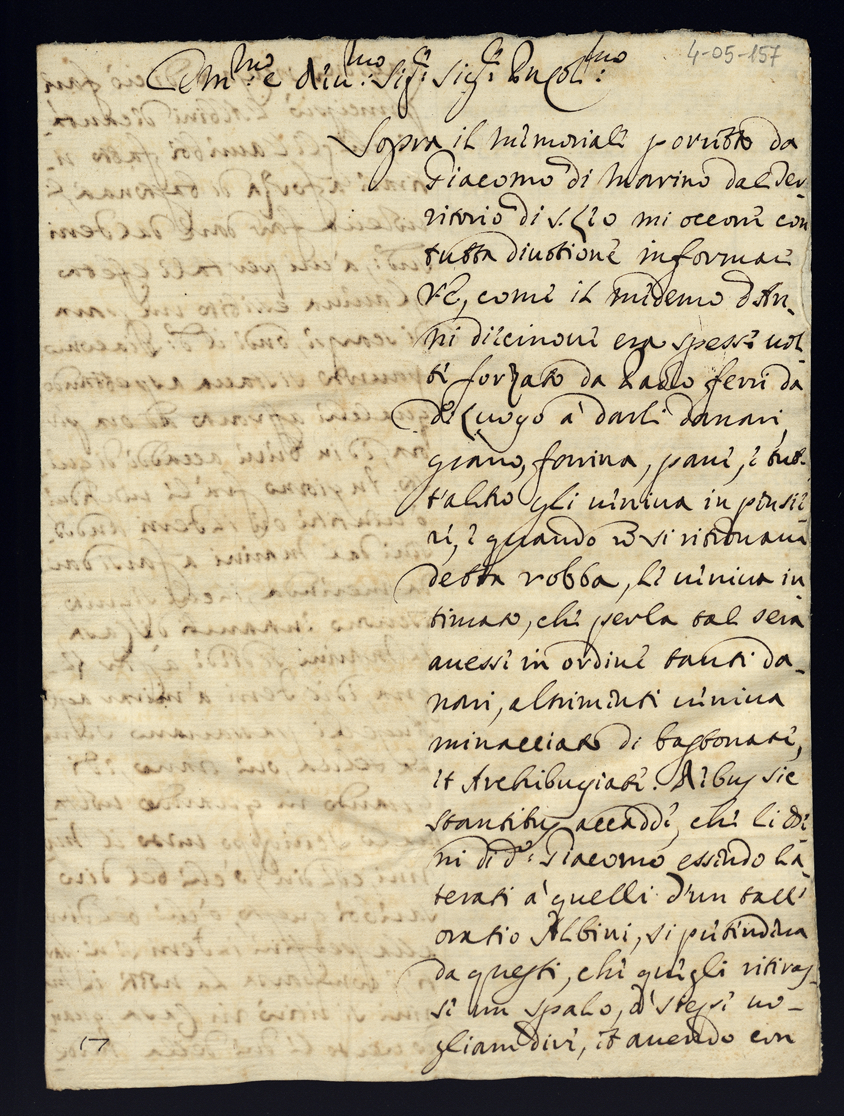 4-05-157
Em.mo e Riu.mo Sig.r Sig.r Pn Col.mo
Sopra il memoriale porretto da
Giacomo di Marino dal Ter-
ritorio di S. Leo mi occorre con
tutta diuotione informar
VE, come il medemo d'An-
ni diecinoue era spesse uol-
te forzato da Paulo ferri da
d.o Luogo à darli danari,
grano, farina, pane, e tut-
t'altro gli ueniua in pensie-
ri, e quando nō si ritrouaua
detta robba, li ueniua in-
timato, che per la tal sera
auesse in ordine tanti da-
nari, altrimenti ueniua
minacciato di bastonate,
et Archibugiate. Rebus sic
stantibus accadde, che li be-
ni di d.o Giacomo essendo la-
terati à quelli d'un tale
oratio Albini, si pretendeua
da questi, che quegli ritiras-
se un spalo, ò siepe uo-
gliam dire, et auendo con
17